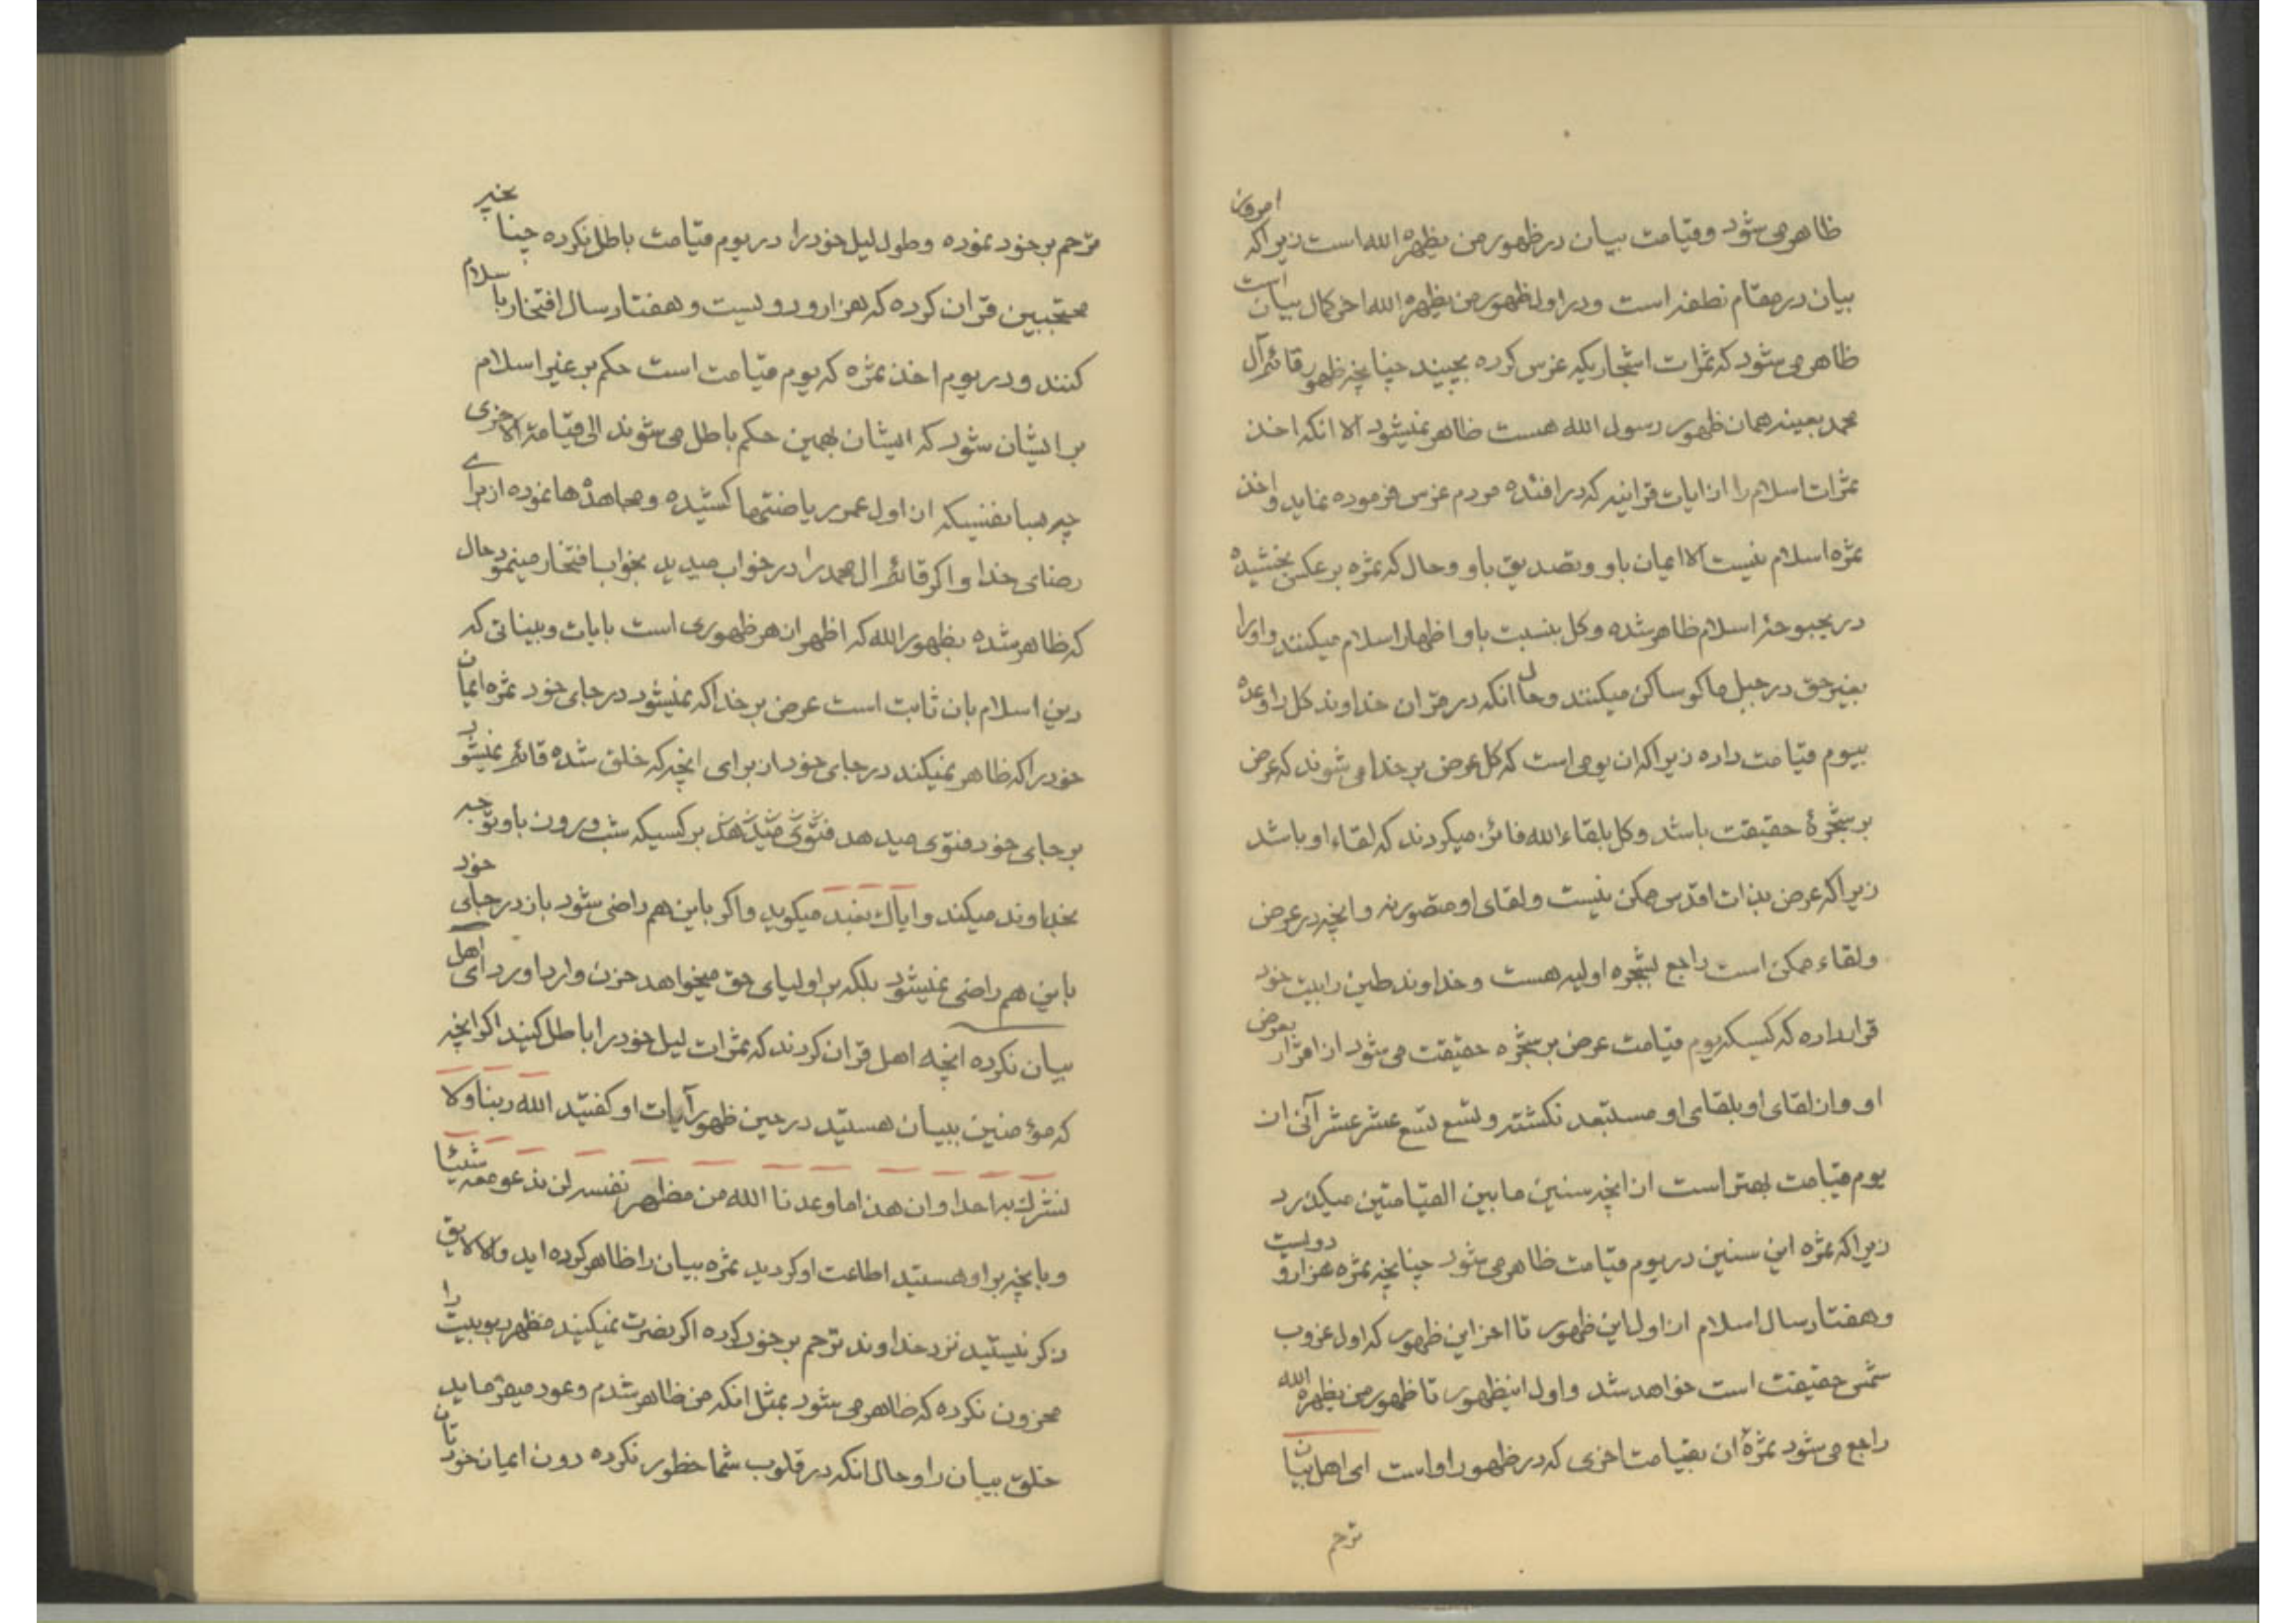 ظاهر می شود و قیامت بیان در ظهور من یظهره الله است زیرا که امروز
بیان در مقام نطفه است و در اول ظهور من یظهره الله اخر کمال بیان است
ظاهر می شود که ثمرات اشجاریکه غرس کرده بچیند چنانچه ظهور قائم آل
محمد بعینه همان ظهور رسول الله هست ظاهر نمیشود الا انکه اخذ
ثمرات اسلام را از ایات قرانیه که در افئده مردم غرس فرموده نماید و اخذ
ثمره اسلام نیست الا ایمان باو و تصدیق باو و حال که ثمره بر عکس بخشیده
در بحبوحهٔ اسلام ظاهر شده و کل بنسبت باو اظهار اسلام میکنند و او را
بغیر حق در جبل ماکو ساکن میکنند و حال انکه در قران خداوند کل را وعده
بیوم قیامت داده زیرا که ان یومی است که کل عرض بر خدا می شوند که عرض
بر شجرهٔ حقیقت باشد و کل بلقاء الله فائز میکردند که لقاء او باشد
زیرا که عرض بذات اقدس ممکن نیست و لقای او متصور نه و انچه در عرض
و لقاء ممکن است راجع بشجره اولیه هست و خداوند طین را بیت خود
قرار داده که کسیکه یوم قیامت عرض بر شجره حقیقت می شود از اقرار بعرض
او و از لقای او بلقای او مستبعد نکشته و تسع تسع عشر عشر آنی از
یوم قیامت بهتر است از انچه سنین ما بین القیامتین میکذرد
زیرا که ثمره این سنین در یوم قیامت ظاهر می شود چنانچه ثمره هزار و دویست
و هفتاد سال اسلام از اول این ظهور تا اخر این ظهور که اول غروب
شمس حقیقت است خواهد شد و اول اینظهور تا ظهور من یظهره الله
راجع می شود ثمرهٔ ان بقیامت اخری که در ظهور او است ای اهل بیان
ترحم
ترحم بر خود نموده و طول لیل خود را در یوم قیامت باطل نکرده چنانچه
محتجبین قران کرده که هزار و دویست و هفتاد سال افتخار باسلام
کنند و در یوم اخذ ثمره که یوم قیامت است حکم بر غیر اسلام
بر ایشان شود که ایشان بهمین حکم باطل می شوند الی قیامة الاخری
چه بسا نفسیکه از اول عمر ریاضتها کشیده و مجاهدهٔ ها نموده از برای
رضای خدا و اکر قائم ال محمد را در خواب میدید بخواب افتخار مینمود حال
که ظاهر شده بظهور الله که اظهر از هر ظهوری است بایات و بیناتی که
دین اسلام بان ثابت است عرض بر خدا که نمیشود در جای خود ثمره ایمان
خود را که ظاهر نمیکند در جای خود از برای انچه که خلق شده قائم نمیشود
بر جای خود فتوی میدهد فتوی میدهد بر کسیکه شب و روز باو توجه
بخداوند میکند و ایاک نعبد میکوید و اکر باین هم راضی شود باز در جای خود
باین هم راضی نمیشود بلکه بر اولیای حق میخواهد حزن وارد اورد ای اهل
بیان نکرده انچه اهل قران کردند که ثمرات لیل خود را باطل کنید اکر انچه
که مؤمنین ببیان هستید در حین ظهور آیات او کفتید الله ربنا و لا
نشرک به احدا و ان هذا ما وعدنا الله من مظهر نفسه لن ندعو معه شیئا
و بانچه بر او هستید اطاعت او کردید ثمره بیان را ظاهر کرده اید و الا لایق
ذکر نیستید نزد خداوند ترحم بر خود کرده اکر نصرت نمیکنید مظهر ربوبیت را
محزون نکرده که ظاهر می شود بمثل انکه من ظاهر شدم و عود میفرماید
خلق بیان را و حال انکه در قلوب شما خطور نکرده دون ایمان خودتان